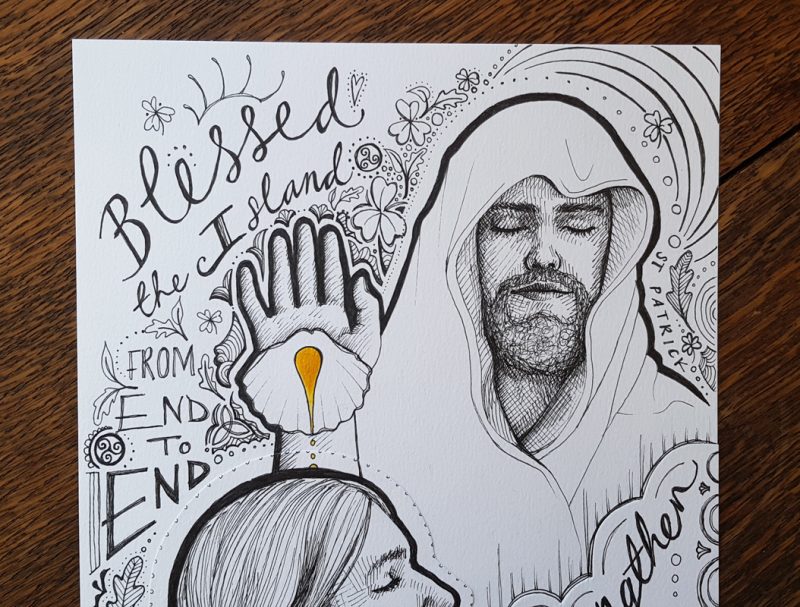 Blessed
the Island
FROM
END
TO
END
ST PATRICK
ngthen